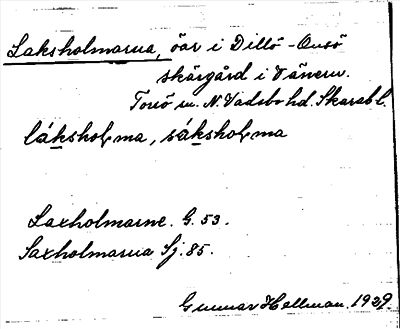 Laksholmarna, öar i Dillö-Onsö
skärgård i Vänern.
Torsö sn. N. Vadsbo hd. Skarab l.
láksholma, sáksholma
Laxholmarne. G. 53.
Saxholmarna Sj. 85.
Gunnar Hellman. 1929.